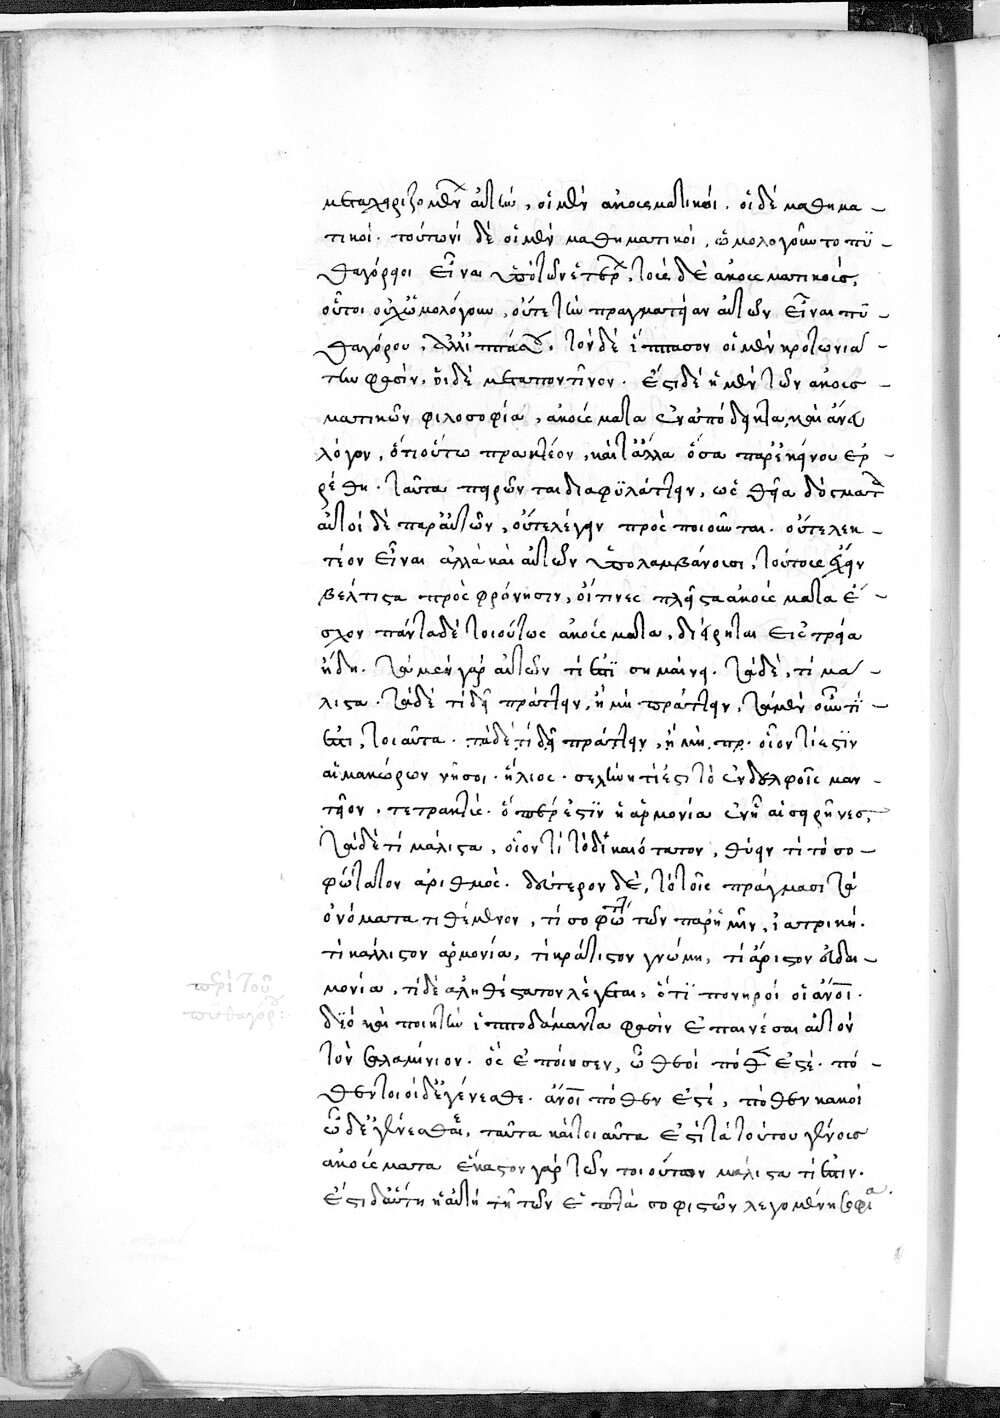 μεταχειριζομένων αὐτήν, οἱ μὲν ἀκουσματικοί. οἱ δὲ μαθημα-
τικοί. τουτωνὶ δὲ οἱ μὲν μαθηματικοί, ὡμολογοῦντο πυ-
θαγόρειοι εἶναι ὑπὸ τῶν ἑτέρων, τοὺς δὲ ἀκουσματικοὺς,
οὗτοι οὐχ ὡμολόγουν, οὔτε τὴν πραγματείαν αὐτῶν εἶναι πυ-
θαγόρου, ἀλλ' ἱππάσου. τὸν δὲ ἵππασον οἱ μὲν κροτωνιά-
την φασὶν, οἱ δὲ μεταποντῖνον. ἔστι δὲ ἡ μὲν τῶν ἀκουσ-
ματικῶν φιλοσοφία, ἀκούσματα ἀναπόδεικτα, καὶ ἄνευ
λόγου, ὅτι οὕτω πρακτέον, καὶ τἄλλα ὅσα παρ' ἐκείνου ἐρ-
ρέθη. ταῦτα πειρῶνται διαφυλάττειν, ὡς θεῖα δόγματα
αὐτοὶ δὲ παρ' αὐτῶν, οὔτε λέγειν προσποιοῦνται. οὔτε λεκ-
τέον εἶναι ἀλλὰ καὶ αὐτῶν ὑπολαμβάνουσι, τούτους ἔχειν
βέλτιστα πρὸς φρόνησιν, οἵτινες πλεῖστα ἀκούσματα ἔ-
σχον πάντα δὲ τοιούτως ἀκούσματα, διῄρηται εἰς τρία
εἴδη. τὰ μὲν γὰρ αὐτῶν τί ἐστι σημαίνει. τὰ δὲ, τί μά-
λιστα. τὰ δὲ τί δεῖ πράττειν, ἢ μὴ πράττειν, τὰ μὲν οὖν τί
ἐστι, τοιαῦτα. τὰ δὲ τί δεῖ πράττειν, ἢ μὴ πρ. οἷον τί ἐστιν
αἱ μακάρων νῆσοι. ἥλιος. σελήνη τί ἐστι τὸ ἐν δελφοῖς μαν-
τεῖον. τετρακτύς. ὅπερ ἐστὶν ἡ ἁρμονία ἐν ᾗ αἱ σειρῆνες,
τὰ δὲ τί μάλιστα, οἷον τί τὸ δικαιότατον, θύειν τί τὸ σο-
φώτατον ἀριθμός. δεύτερον δὲ, τὸ τοῖς πράγμασι τὰ
ὀνόματα τιθέμενον, τί σοφώτατον τῶν παρ' ἡμῖν, ἰατρική.
τί κάλλιστον ἁρμονία, τί κράτιστον γνώμη, τί ἄριστον εὐδαι-
μονία, τί δὲ ἀληθέστατον λέγεται, ὅτι πονηροὶ οἱ ἄνοι.
διὸ καὶ ποιητὴν ἱπποδάμαντα φασὶν ἐπαινέσαι αὐτὸν
τὸν σαλαμίνιον. ὃς ἐποίησεν, ὦ θεοὶ πόθεν ἐστέ. πό-
θεν τοιοίδ' ἐγένεσθε. ἄνοι πόθεν ἐστέ, πόθεν κακοὶ
ὧδ' ἐγένεσθε, ταῦτα καὶ τοιαῦτα ἐστὶ τὰ τούτου γένους
ἀκούσματα ἕκαστον γὰρ τῶν τοιούτων μάλιστα τί ἐστιν.
ἔστι δ' αὕτη ἡ αὐτὴ τῇ τῶν ἑπτὰ σοφιστῶν λεγομένη σοφία.
περὶ τοῦ
πυθαγόρ: